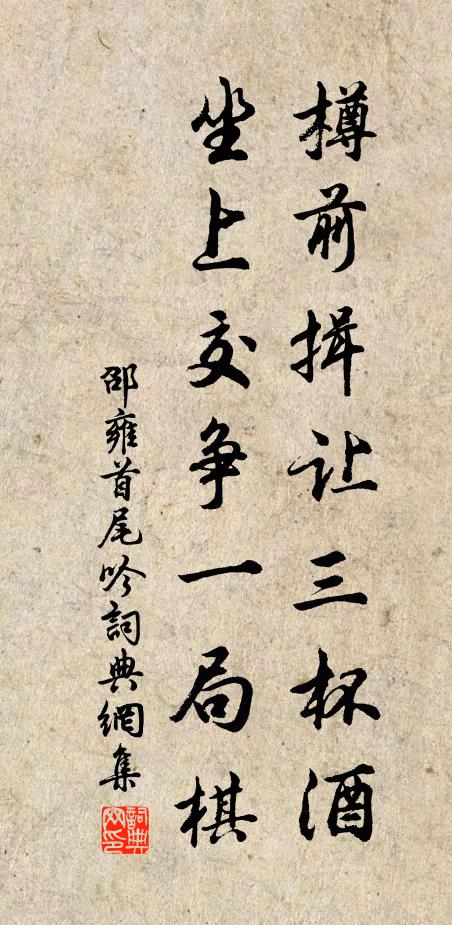 樽前揖让三杯酒
坐上交争一局棋
邵雍首尾吟詞典網集
詞典网印